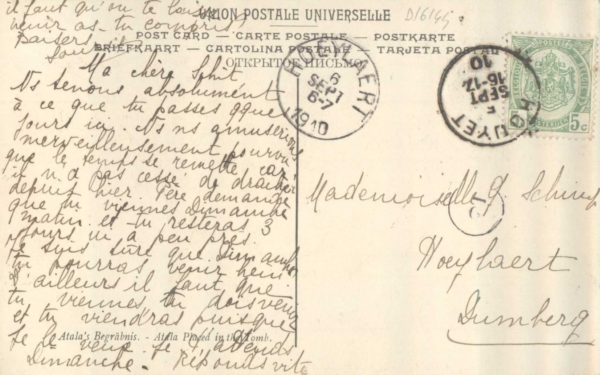 il faut qu'on te laisse
venir as-tu compris
Baisers
UNION POSTALE UNIVERSELLE
D/6145
POST CARD — CARTE POSTALE — POSTKARTE
BRIEFKAART — CARTOLINA POSTALE — TARJETA POSTAL
ОТКРЫТОЕ ПИСЬМО
Ma chère
Nous tenons absolument
à ce que tu passes qque
jours ici. Ns ns amuserions
merveilleusement pourvu
que le temps se remette car
il n'a pas cessé de dracher
depuis hier. Père demande
que tu viennes Dimanche
matin et tu resteras 3
jours ou à peu près.
Je suis sûre que
tu pourras venir hein!
d'ailleurs il faut que
tu viennes, tu dois venir
et tu viendras puisque
je le veux. Je t'attends
Dimanche. Réponds vite
Atala's Begräbnis. - Atala Placed in the Tomb.
HOEYLAERT
6
SEPT
6-7
1910
HOUYET
5
SEPT
16-17
10
5c
Mademoiselle G
Hoeylaert
Dumberg